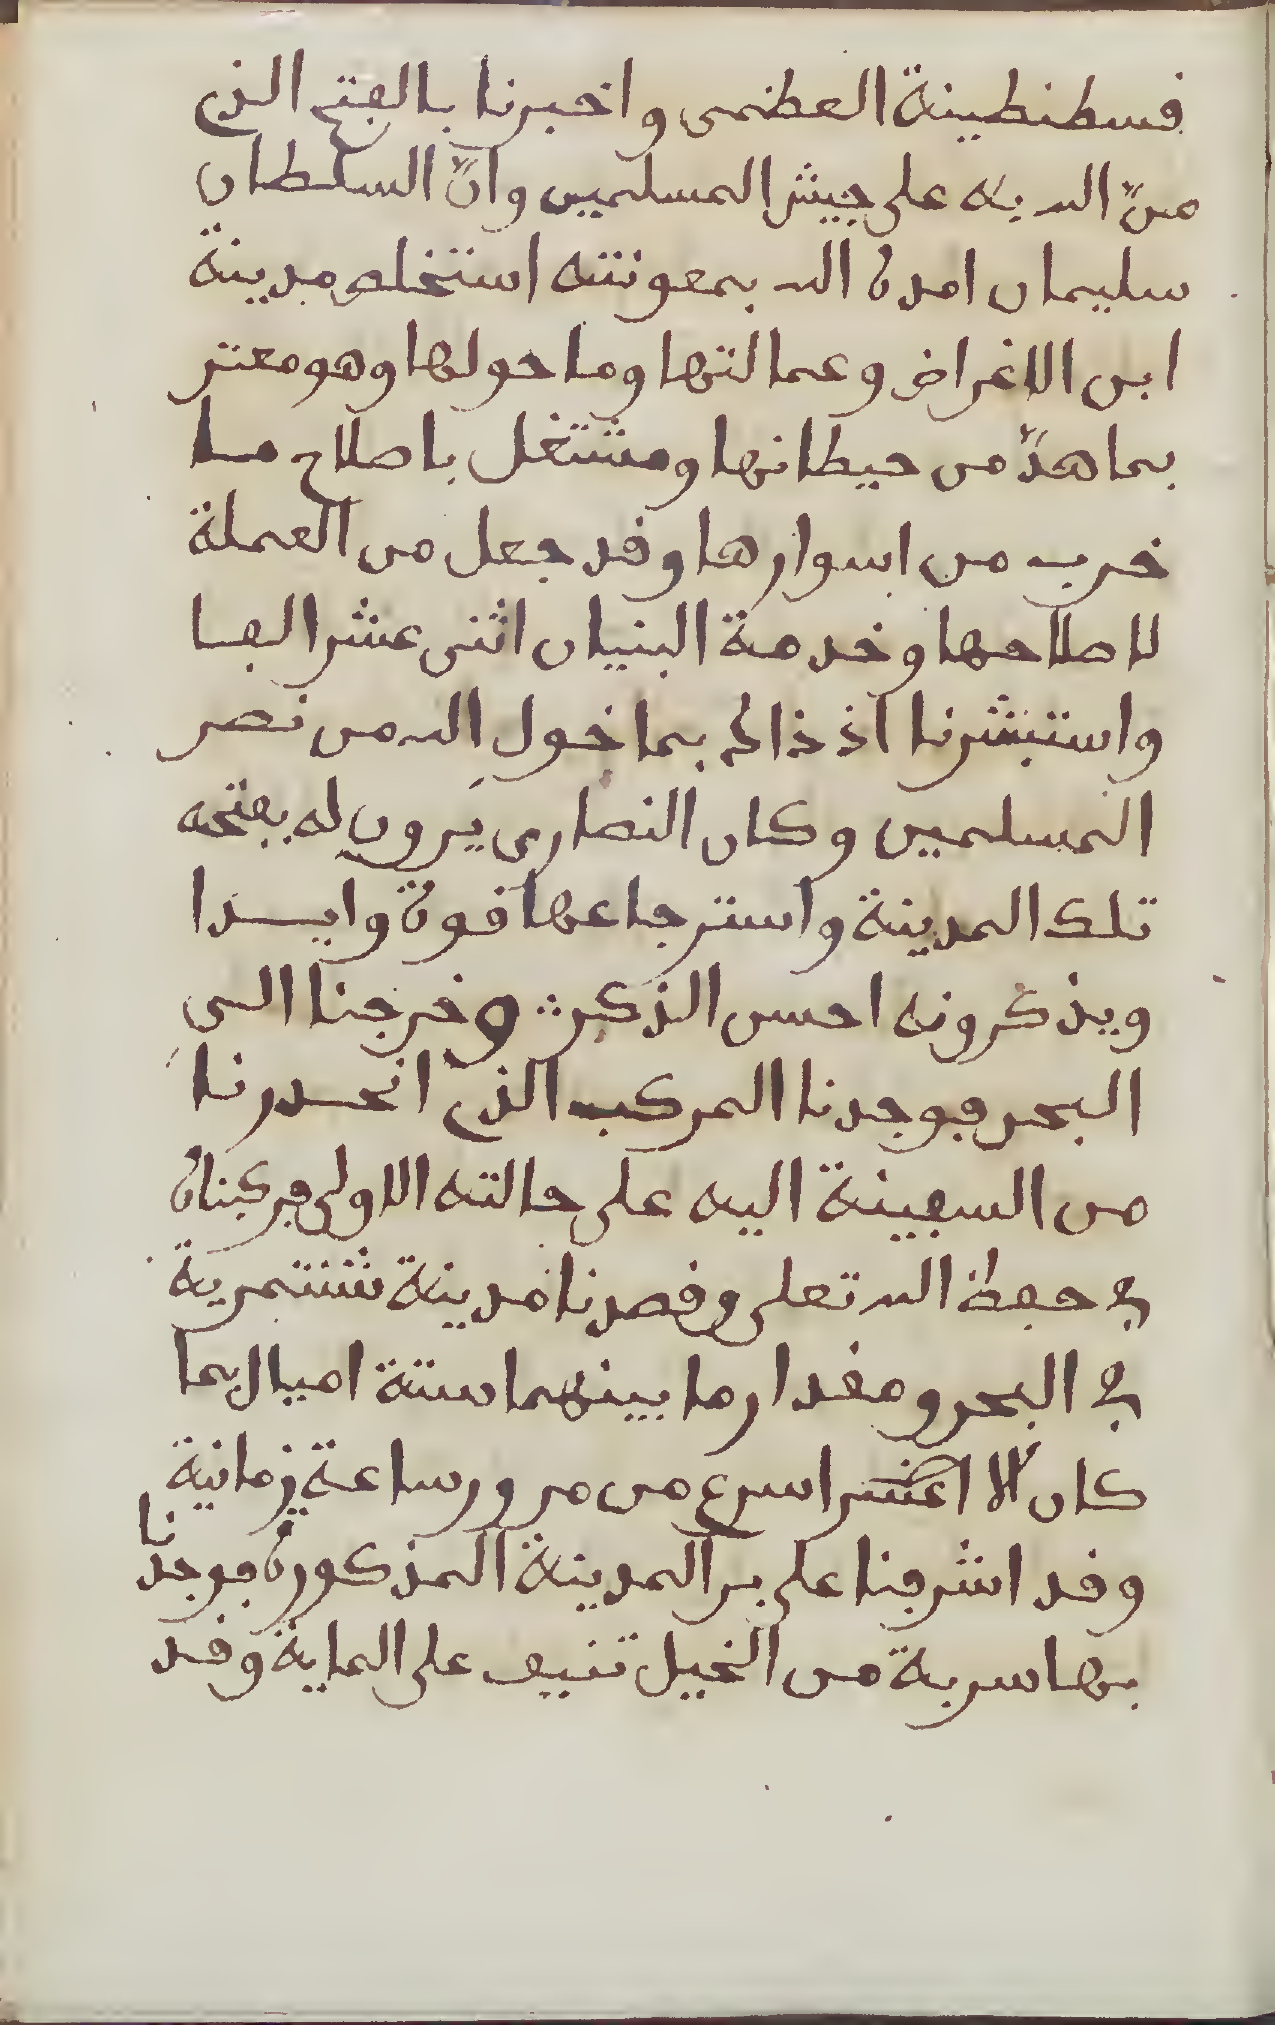 قسطنطينة العظمى واخبرنا بالفتح الذي
منّ الله به على جيش المسلمين وانّ السلطان
سليمان امده الله بمعونته استخلص مدينة
ابن الاغراض وعمالتها وما حولها وهو معتن
بما هدّ من حيطانها ومشتغل باصلاح ما
خرب من اسوارها وقد جعل من العملة
لاصلاحها وخدمة البنيان اثنى عشر الفا
واستبشرنا اذ ذاك بما خول الله من نصر
المسلمين وكان النصارى يرون له بفتحه
تلك المدينة واسترجاعها قوة وايدا
ويذكرونه احسن الذكر ∴ وخرجنا الى
البحر فوجدنا المركب الذي انحدرنا
من السفينة اليه على حالته الاولى فركبناه
في حفظ الله تعلى وقصدنا مدينة شنتمرية
في البحر ومقدار ما بينهما ستة اميال بما
كان الا اسرع من مرور ساعة زمانية
وقد اشرفنا على بر المدينة المذكورة فوجدنا
بها سربة من الخيل تنيف على الماية وقد